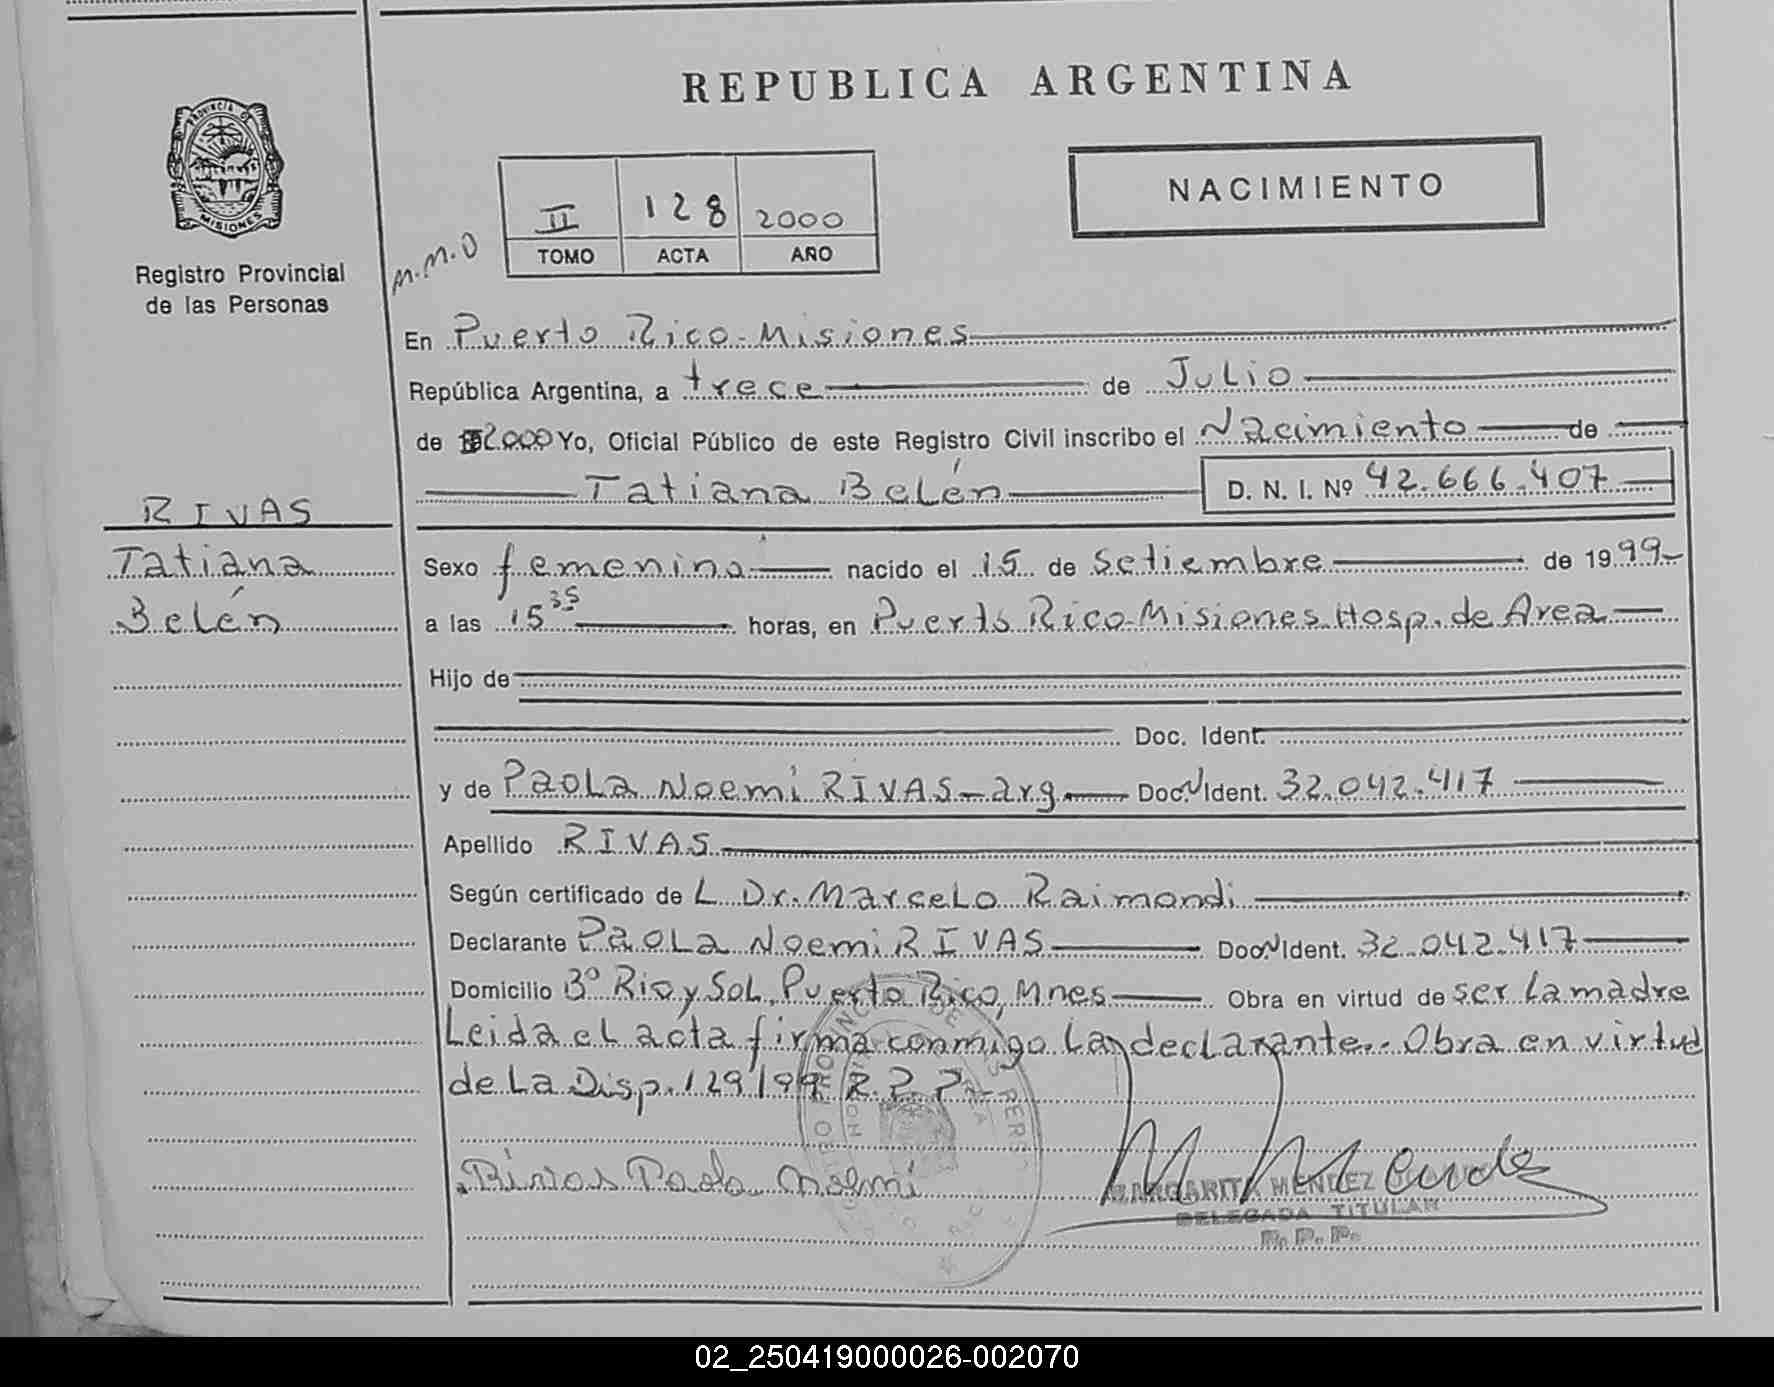 REPUBLICA ARGENTINA
PROVINCIA DE
MISIONES
Registro Provincial
de las Personas
NACIMIENTO
II 128 2000
TOMO ACTA AÑO
M.M.O
En Puerto Rico-Misiones
República Argentina, a trece de Julio
de 2000 Yo, Oficial Público de este Registro Civil inscribo el Nacimiento de
Tatiana Belén D. N. I. Nº 42.666.407
RIVAS
Tatiana
Belén
Sexo femenino nacido el 15 de Setiembre de 1999-
a las 15 35 horas, en Puerto Rico-Misiones-Hosp. de Area
Hijo de
Doc. Ident.
y de Paola Noemi RIVAS-arg. Doc. Ident. 32.042.417
Apellido RIVAS
Según certificado de L Dr. Marcelo Raimondi
Declarante Paola Noemi RIVAS Doc. Ident. 32.042.417
Domicilio Bº Rio y Sol, Puerto Rico, Mnes Obra en virtud de ser la madre
Leida el acta firma conmigo la declarante.. Obra en virtud
de la Disp. 129/99 R.P.P-
Rivas Paola Noemi
MARGARITA MENDEZ
DELEGADA TITULAR
R. P. P.
02_250419000026-002070